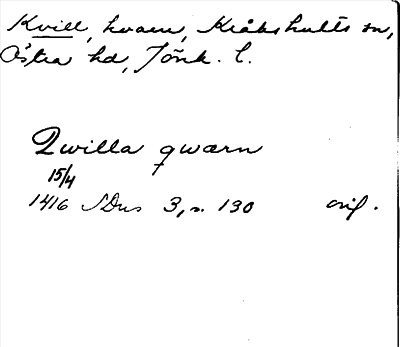 Kvill, kvarn, Kråkshults sn,
Östra hd, Jönk. l.
Qwilla qwærn
15/4
1416 SDns 3, s. 130 orig.